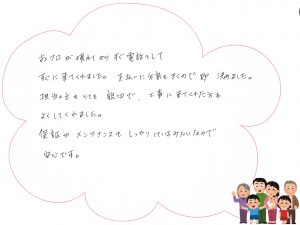 おフロが壊れてからすぐ電話をして
すぐに来てくれました。 支払いに分割もきくので即 決めました。
担当の方もとても親切で、工事に来てくれた方も
よくしてくれました。
保証やメンテナンスも しっかりしているみたいなので
安心です。